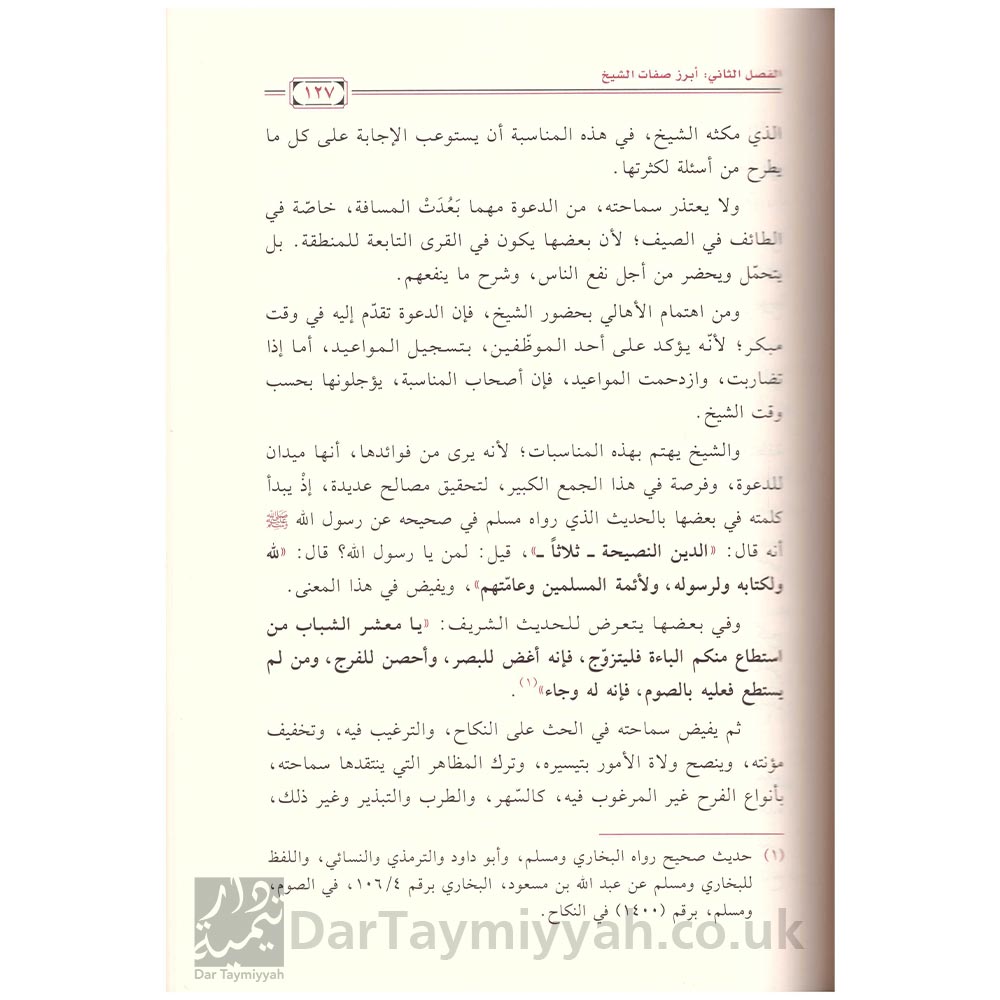 الفصل الثاني: أبرز صفات الشيخ
١٢٧
الذي مكثه الشيخ، في هذه المناسبة أن يستوعب الإجابة على كل ما
يطرح من أسئلة لكثرتها.
ولا يعتذر سماحته، من الدعوة مهما بَعُدَتْ المسافة، خاصّة في
الطائف في الصيف؛ لأن بعضها يكون في القرى التابعة للمنطقة. بل
يتحمّل ويحضر من أجل نفع الناس، وشرح ما ينفعهم.
ومن اهتمام الأهالي بحضور الشيخ، فإن الدعوة تقدّم إليه في وقت
مبكر؛ لأنّه يؤكد على أحد الموظّفين، بتسجيل المواعيد، أما إذا
تضاربت، وازدحمت المواعيد، فإن أصحاب المناسبة، يؤجلونها بحسب
وقت الشيخ.
والشيخ يهتم بهذه المناسبات؛ لأنه يرى من فوائدها، أنها ميدان
للدعوة، وفرصة في هذا الجمع الكبير، لتحقيق مصالح عديدة، إذْ يبدأ
كلمته في بعضها بالحديث الذي رواه مسلم في صحيحه عن رسول الله ﷺ
أنه قال: «الدين النصيحة ـ ثلاثاً ـ»، قيل: لمن يا رسول الله؟ قال: «لله
ولكتابه ولرسوله، ولأئمة المسلمين وعامّتهم»، ويفيض في هذا المعنى.
وفي بعضها يتعرض للحديث الشريف: «يا معشر الشباب من
استطاع منكم الباءة فليتزوّج، فإنه أغض للبصر، وأحصن للفرج، ومن لم
يستطع فعليه بالصوم، فإنه له وجاء»(١).
ثم يفيض سماحته في الحث على النكاح، والترغيب فيه، وتخفيف
مؤنته، وينصح ولاة الأمور بتيسيره، وترك المظاهر التي ينتقدها سماحته،
بأنواع الفرح غير المرغوب فيه، كالسّهر، والطرب والتبذير وغير ذلك،
(١) حديث صحيح رواه البخاري ومسلم، وأبو داود والترمذي والنسائي، واللفظ
للبخاري ومسلم عن عبد الله بن مسعود، البخاري برقم ١٠٦/٤، في الصوم،
ومسلم، برقم (١٤٠٠) في النكاح.
دار تيمية
Dar Taymiyyah
DarTaymiyyah.co.uk